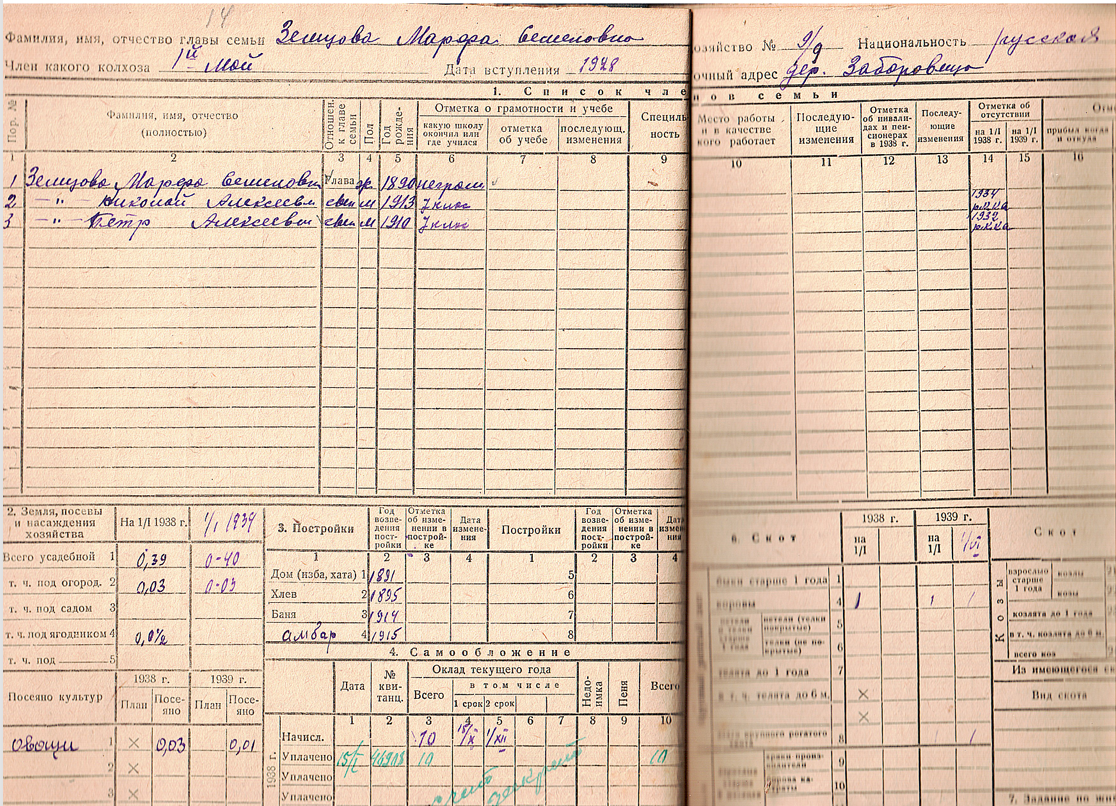 14
Фамилия, имя, отчество главы семьи Земцова Марфа Семеновна
Член какого колхоза 1й Май Дата вступления 1928
озяйство № 9/9 Национальность русская
очный адрес дер. Заборовещо
1. Список чле
нов семьи
Пор. №
Фамилия, имя, отчество (полностью)
Отношен. к главе семьи
Пол
Год рождения
Отметка о грамотности и учебе
какую школу окончил или где учился
отметка об учебе
последующ. изменения
Специаль ность
Место работы и в качестве кого работает
Последующие изменения
Отметка об инвалидах и пенсионерах в 1938 г.
Последующие изменения
Отметка об отсутствии
на 1/I 1938 г.
на 1/I 1939 г.
Отм
прибыл когда и откуда
1 2 3 4 5 6 7 8 9 10 11 12 13 14 15 16
1 Земцова Марфа Семеновн Глава ж 1890 неграм
2 —"— Николай Алексеевич сын м 1913 7 клас 1934 РККА
3 —"— Петр Алексеевич сын м 1910 7 клас 1932 РККА
2. Земля, посевы и насаждения хозяйства
На 1/I 1938 г. 1/I 1939
Всего усадебной 1 0,39 0-40
т. ч. под огород. 2 0,03 0-03
т. ч. под садом 3
т. ч. под ягодником 4
т. ч. под 5
Посеяно культур
1938 г. 1939 г.
План Посеяно План Посеяно
овощи 1 × 0,03 0,01
2 ×
3 ×
3. Постройки
Год возведения постройки
Отметка об изменении в постройке
Дата изменения
Постройки
Год возведения постройки
Отметка об измен. в постройке
Дата измен
1 2 3 4 1 2 3 4
Дом (изба, хата) 1 1891 5
Хлев 2 1895 6
Баня 3 1914 7
амбар 4 1915 8
4. Самообложение
Дата
№ квитанц.
Оклад текущего года
Всего
в том числе
1 срок 2 срок
Недоимка
Пеня
Всего
1 2 3 4 5 6 7 8 9 10
1938 г.
Начисл. 10 15/X 1/XII
Уплачено 15/X 46908 10 10
Уплачено
Уплачено
6. Скот
1938 г. 1939 г.
на 1/I на 1/I 1/VI
быки старше 1 года 1
коровы 4 1 1 1
нетели (телки покрытые) 5
телки (не покрытые) 6
телята до 1 года 7
в т. ч. телята до 6 м. ×
×
всего крупного рогатого скота 8 1
9
10
Скот
Козы
взрослые старше 1 года
козлы
козы
козлята до 1 года
в т. ч. козлята до 6 м.
всего коз
Из имеющегося с
Вид скота
7. Задание по